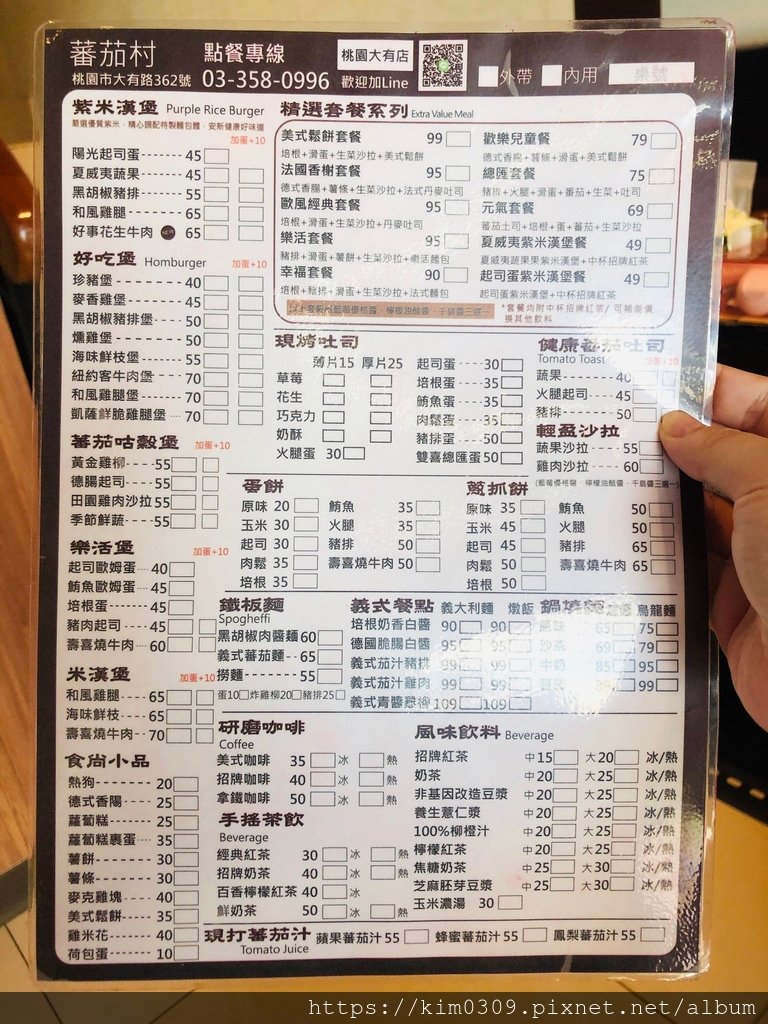 蕃茄村 點餐專線 桃園大有店 外帶 內用 桌號
桃園市大有路362號 03-358-0996 歡迎加Line
紫米漢堡 Purple Rice Burger
嚴選優質紫米，精心調配特製麵包糰，安新健康好味道
加蛋+10
陽光起司蛋 45
夏威夷蔬果 45
黑胡椒豬排 55
和風雞腿 65
好事花生牛肉 NEW 65
好吃堡 Homburger 加蛋+10
珍豬堡 40
麥香雞堡 45
黑胡椒豬排堡 50
燻雞堡 50
海味鮮枝堡 55
紐約客牛肉堡 70
和風雞腿堡 70
凱薩鮮脆雞腿堡 70
蕃茄咕穀堡 加蛋+10
黃金雞柳 55
德腸起司 55
田園雞肉沙拉 55
季節鮮蔬 55
樂活堡 加蛋+10
起司歐姆蛋 40
鮪魚歐姆蛋 45
培根蛋 45
豬肉起司 45
壽喜燒牛肉 60
米漢堡 加蛋+10
和風雞腿 65
海味鮮枝 65
壽喜燒牛肉 70
食尚小品
熱狗 20
德式香陽 25
蘿蔔糕 25
蘿蔔糕裹蛋 35
薯餅 30
薯條 30
麥克雞塊 40
美式鬆餅 35
雞米花 40
荷包蛋 10
精選套餐系列 Extra Value Meal
美式鬆餅套餐 99
培根+滑蛋+生菜沙拉+美式鬆餅
法國香榭套餐 95
德式香腸+薯條+滑蛋+生菜沙拉+法式丹麥吐司
歐風經典套餐 95
培根+滑蛋+生菜沙拉+丹麥吐司
樂活套餐 95
豬排+滑蛋+薯餅+生菜沙拉+樂活麵包
幸福套餐 90
培根+豬排+滑蛋+生菜沙拉+法式麵包
歡樂兒童餐 79
德式香腸+薯條+滑蛋+美式鬆餅
總匯套餐 75
豬排+火腿+滑蛋+番茄+生菜+吐司
元氣套餐 69
蕃茄土司+培根+蛋+蕃茄+生菜沙拉
夏威夷紫米漢堡餐 49
夏威夷蔬果紫米漢堡+中杯招牌紅茶
起司蛋紫米漢堡餐 49
起司蛋紫米漢堡+中杯招牌紅茶
以上套餐均葡萄優格醬、檸檬油醋醬、千島醬三選一
*套餐均附中杯招牌紅茶/ 可補差價
換其他飲料
現烤吐司
薄片15 厚片25
草莓
花生
巧克力
奶酥
火腿蛋 30
起司蛋 30
培根蛋 35
鮪魚蛋 35
肉鬆蛋 35
豬排蛋 50
雙喜總匯蛋 50
健康蕃茄吐司
Tomato Toast 加蛋+10
蔬果 40
火腿起司 45
豬排 50
輕盈沙拉
蔬果沙拉 55
雞肉沙拉 60
(葡萄優格醬、檸檬油醋醬、千島醬三選一)
蛋餅
原味 20 鮪魚 35
玉米 30 火腿 35
起司 30 豬排 50
肉鬆 35 壽喜燒牛肉 50
培根 35
蔥抓餅
原味 35 鮪魚 50
玉米 45 火腿 50
起司 45 豬排 65
肉鬆 50 壽喜燒牛肉 65
培根 50
鐵板麵
Spogheffi
黑胡椒肉醬麵 60
義式蕃茄麵 65
撈麵 55
蛋10 炸雞柳20 豬排25
義式餐點 義大利麵 燉飯
培根奶香白醬 90 90
德國脆腸白醬 95 95
義式茄汁豬排 99 99
義式茄汁雞肉 99 99
義式青醬雞柳 109 109
鍋燒麵 烏龍麵
原味 65 75
沙茶 69 79
牛奶 85 95
99
研磨咖啡
Coffee
美式咖啡 35 冰 熱
招牌咖啡 40 冰 熱
拿鐵咖啡 50 冰 熱
手搖茶飲
Beverage
經典紅茶 30 冰 熱
招牌奶茶 40 冰 熱
百香檸檬紅茶 40 冰
鮮奶茶 50 冰 熱
風味飲料 Beverage
招牌紅茶 中15 大20 冰/熱
奶茶 中20 大25 冰/熱
非基因改造豆漿 中20 大25 冰/熱
養生薏仁漿 中20 大25 冰/熱
100%柳橙汁 中20 大25 冰/熱
檸檬紅茶 中20 大25 冰/熱
焦糖奶茶 中25 大30 冰/熱
芝麻胚芽豆漿 中25 大30 冰/熱
玉米濃湯 30
現打蕃茄汁 蘋果蕃茄汁 55 蜂蜜蕃茄汁 55 鳳梨蕃茄汁 55
Tomato Juice
https://kim0309.pixnet.net/album